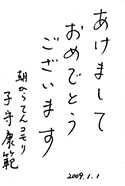 あけまして
おめでとう
ございます
朝からてんコモリ
子守康範
2009.1.1